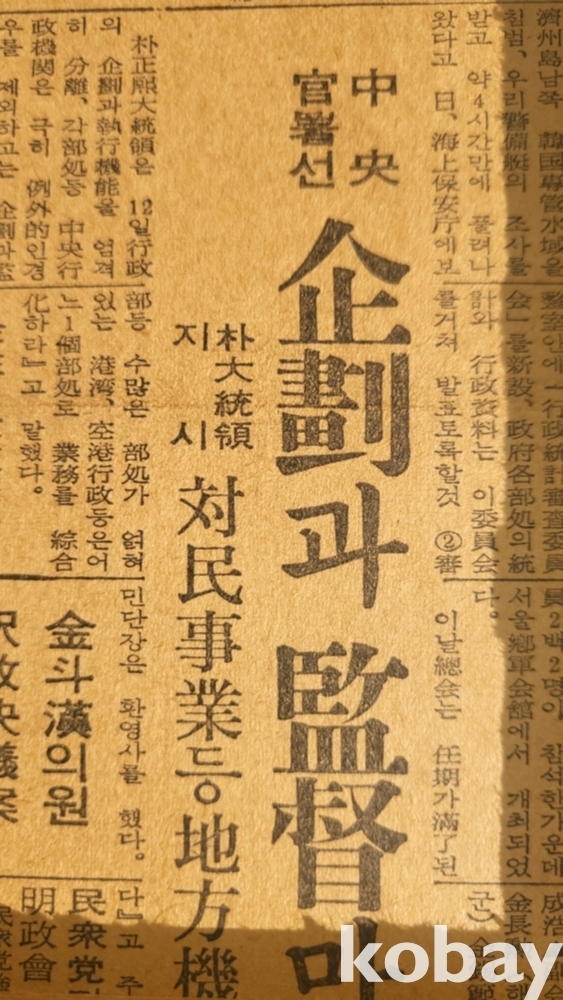 濟州島남쪽 韓国専管水域을
침범、우리警備艇의 조사를
받고 약4시간만에 풀려나
왔다고 日、海上保安庁에보
会」를新設、政府各部処의統
計와 行政資料는 이委員会
를거쳐 발표토록할것 ②審
員2백2명이 참석한가운데
서울鄕軍会館에서 개최되었
다。
이날總会는 任期가滿了된
中央
官署선
企劃과 監督만
朴大統領
지시
対民事業등 地方機
朴正熙大統領은 12일行政
의 企劃과執行機能을 엄격
히 分離、各部処등 中央行
政機関은 극히 例外的인경
우를 제외하고는 企劃과監
部등 수많은 部処가 얽혀
있는 港湾、空港行政등은어
느1個部処로 業務를 綜合
化하라」고 말했다。
민단장은 환영사를 했다。
金斗漢의원
다』고 주
民衆党
明政會
kobay